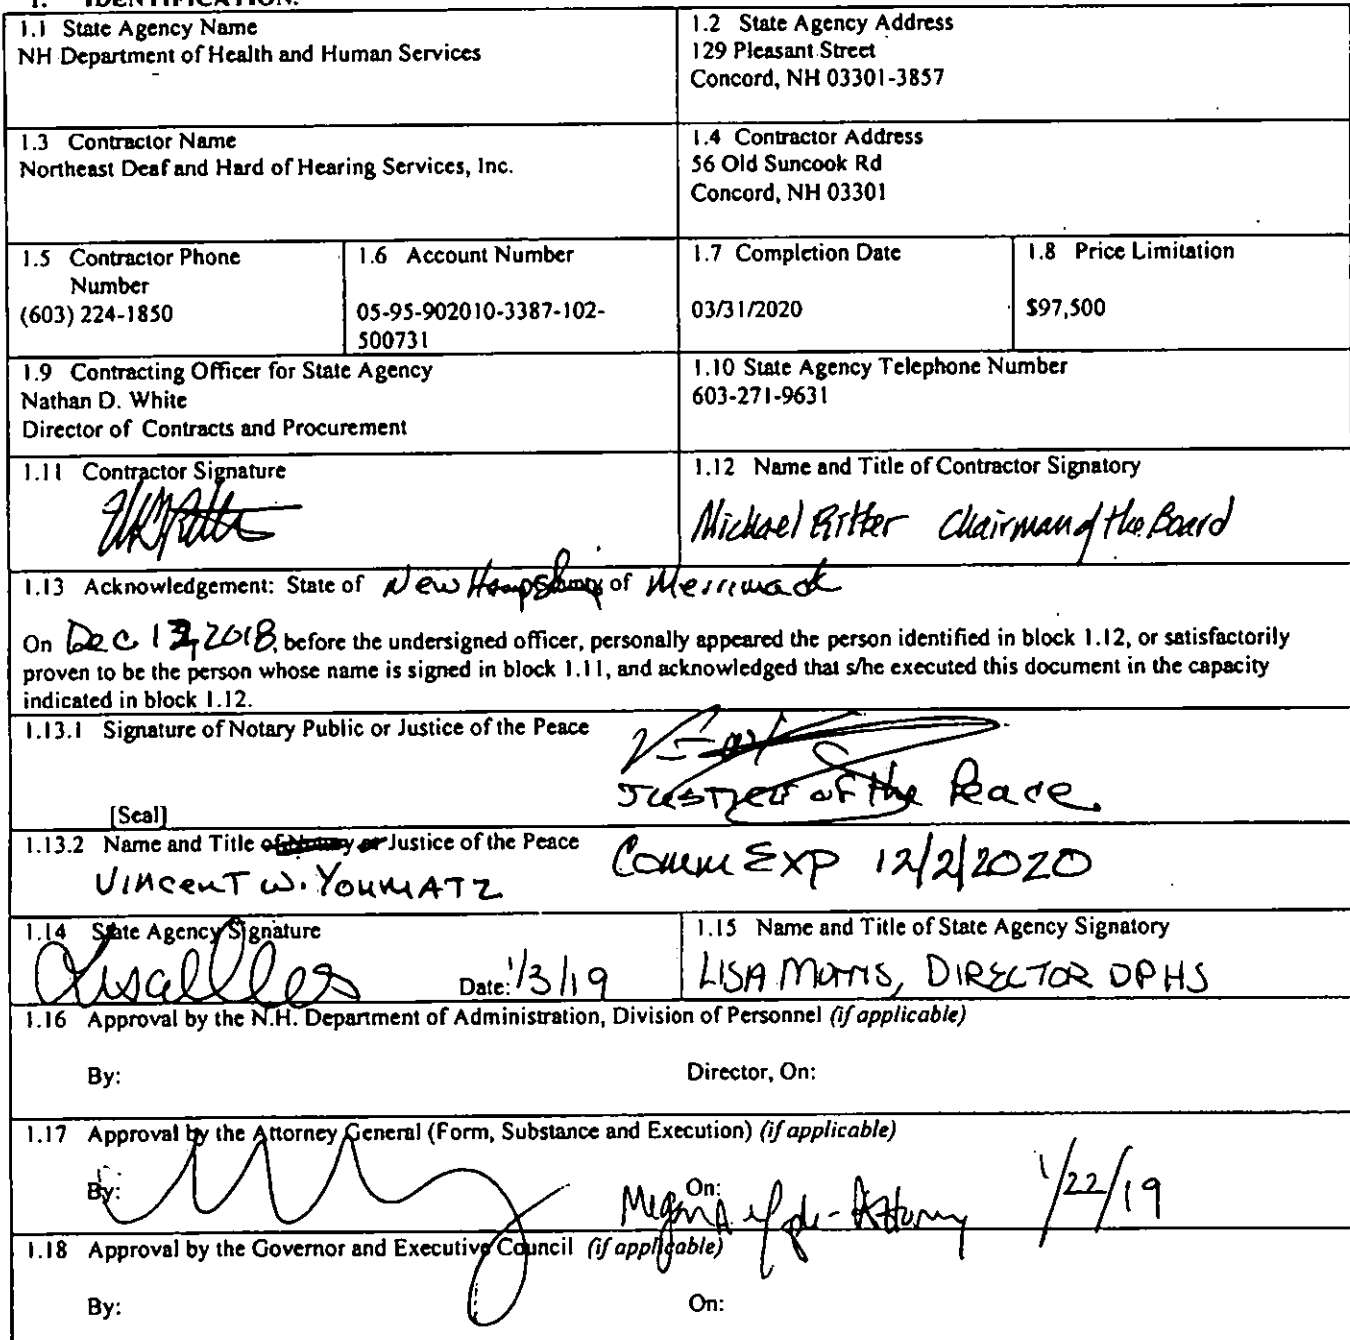 1. IDENTIFICATION.
1.1 State Agency Name
NH Department of Health and Human Services
1.2 State Agency Address
129 Pleasant Street
Concord, NH 03301-3857
1.3 Contractor Name
Northeast Deaf and Hard of Hearing Services, Inc.
1.4 Contractor Address
56 Old Suncook Rd
Concord, NH 03301
1.5 Contractor Phone
Number
(603) 224-1850
1.6 Account Number
05-95-902010-3387-102-
500731
1.7 Completion Date
03/31/2020
1.8 Price Limitation
$97,500
1.9 Contracting Officer for State Agency
Nathan D. White
Director of Contracts and Procurement
1.10 State Agency Telephone Number
603-271-9631
1.11 Contractor Signature
1.12 Name and Title of Contractor Signatory
Michael Ritter Chairman of the Board
1.13 Acknowledgement: State of New Hampshire of Merrimack
On Dec 2018, before the undersigned officer, personally appeared the person identified in block 1.12, or satisfactorily
proven to be the person whose name is signed in block 1.11, and acknowledged that s/he executed this document in the capacity
indicated in block 1.12.
1.13.1 Signature of Notary Public or Justice of the Peace
Justice of the Peace
[Seal]
1.13.2 Name and Title of Notary or Justice of the Peace
Vincent W. Youmatz
Comm Exp 12/2/2020
1.14 State Agency Signature
Date: 1/3/19
1.15 Name and Title of State Agency Signatory
LISA MORRIS, DIRECTOR DPHS
1.16 Approval by the N.H. Department of Administration, Division of Personnel (if applicable)
By:
Director, On:
1.17 Approval by the Attorney General (Form, Substance and Execution) (if applicable)
By:
On:
Attorney 1/22/19
1.18 Approval by the Governor and Executive Council (if applicable)
By:
On: